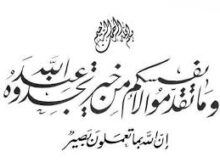 بسم الله الرحمن الرحيم
وما تقدموا لأنفسكم من خير تجدوه عند الله
إن الله بما تعملون بصير